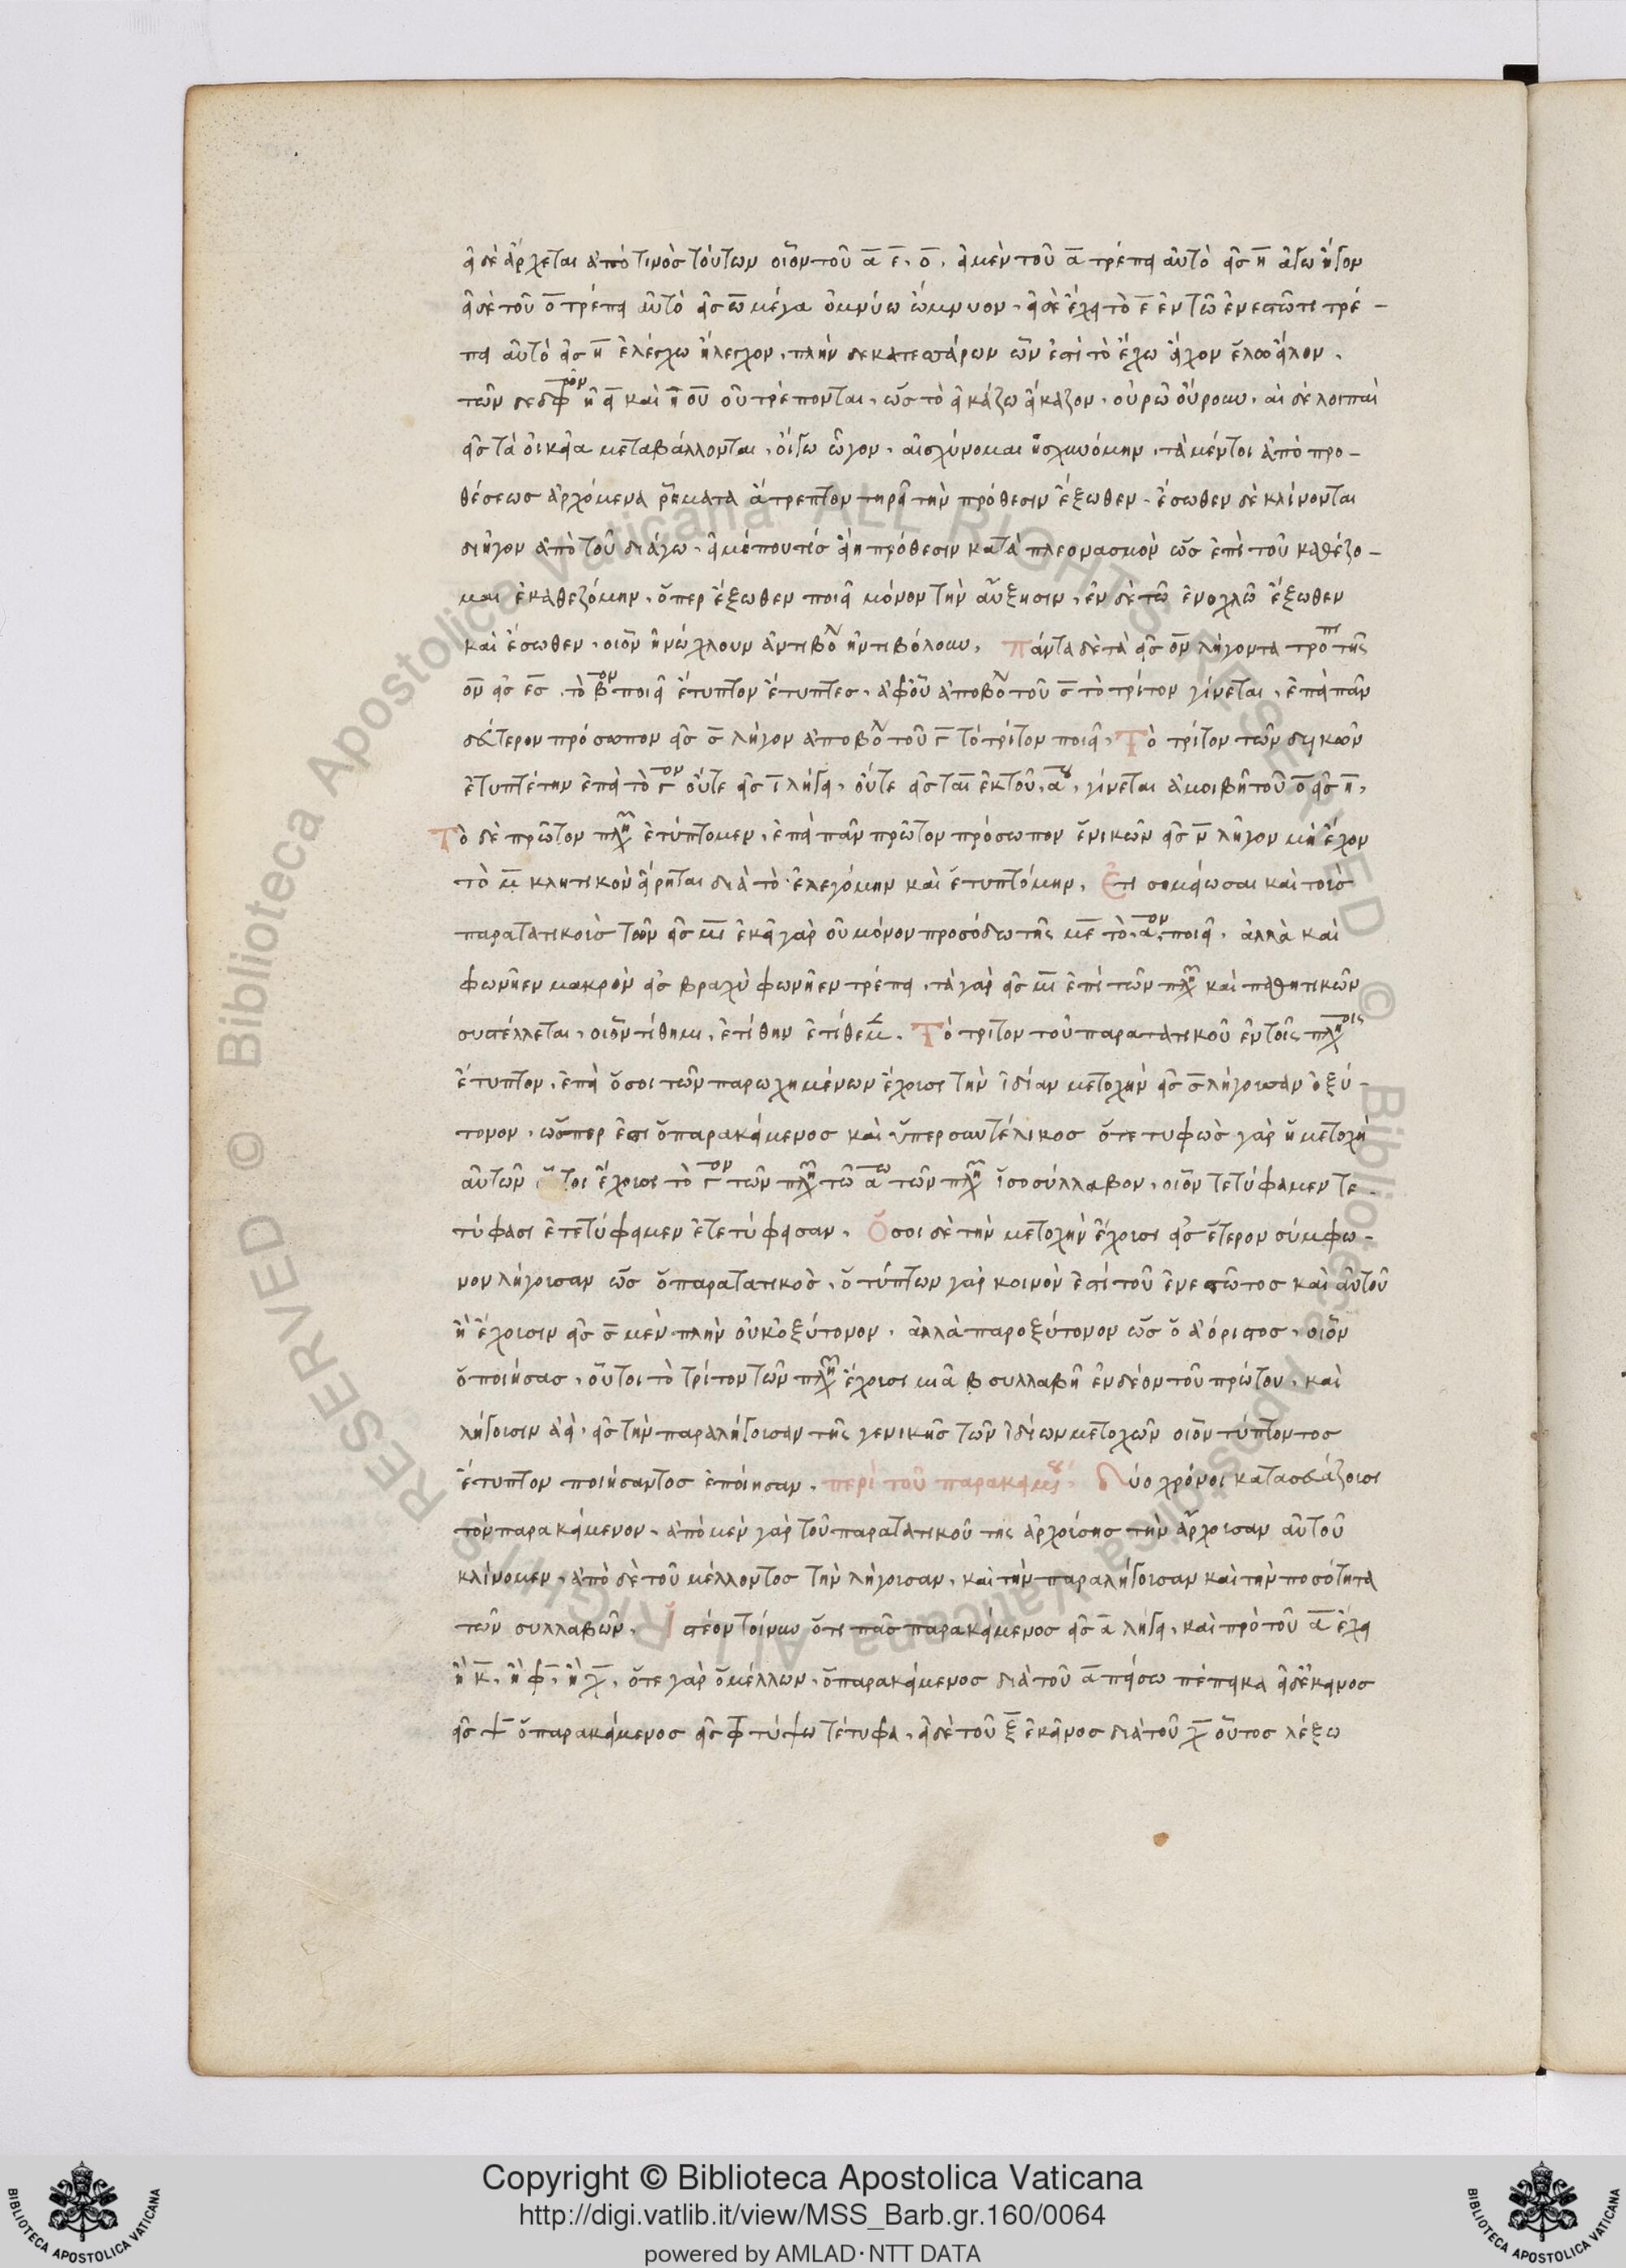 εἰ δὲ ἄρχεται ἀπό τινος τούτων οἷον τοῦ α̅ ε̅. ο̅. εἰ μὲν τοῦ α̅ τρέπει αὐτὸ εἰς η̅
εἰ δὲ τοῦ ο̅ τρέπει αὐτὸ εἰς ω̅ μέγα ὀμνύω ὤμνυον. εἰ δὲ ἔχει τὸ ε̅ ἐν τῶ ἐνεστῶτι τρέ-
πει αὐτὸ εἰς η̅ ἐλέγχω ἤλεγχον. πλὴν δεκατεσσάρων ὧν ἐστὶ τὸ ἔχω εἶχον ἕλκω εἷλκον.
τῶν δὲ η̅ ει̅ καὶ ου̅ οὐ τρέπονται. ὡς τὸ εἰκάζω εἴκαζον. οὐρῶ οὔρουν. αἱ δὲ λοιπαὶ
εἰς τὰ οἰκεῖα μεταβάλλονται. αἰσχύνομαι ἠσχυνόμην. τὰ μέντοι ἀπὸ προ-
θέσεως ἀρχόμενα ῥήματα ἄτρεπτον τηρεῖ τὴν πρόθεσιν ἔξωθεν. ἔσωθεν δὲ κλίνονται
διῆγον ἀπὸ τοῦ διάγω. εἰ μέ που τις εἴη πρόθεσιν κατὰ πλεονασμὸν ὡς ἐπὶ τοῦ καθέζο-
μαι ἐκαθεζόμην. ὅπερ ἔξωθεν ποιεῖ μόνον τὴν αὔξησιν. ἐν δὲ τῶ ἐνοχλῶ ἔξωθεν
καὶ ἔσωθεν. οἷον ἠνώχλουν ἀντιβολ ἠντιβόλουν. Πάντα δὲ τὰ εἰς ον̅ λήγοντα τροπῆ τῆς
ον̅ εἰς ες̅. τὸ β̅ον ποιεῖ ἔτυπτον ἔτυπτες. ἀφ οὗ ἀποβολ τοῦ ς̅ τὸ τρίτον γίνεται. ἐπεὶ πᾶν
δεύτερον πρόσωπον εἰς ς̅ λῆγον ἀποβολ τοῦ ς̅ τὸ τρίτον ποιεῖ. Τὸ τρίτον τῶν δυικῶν
ἐτυπτέτην ἐπεὶ τὸ γ̅ον οὔτε εἰς ι̅ λήγει. οὔτε εἰς ται̅ ἐκ τοῦ α̅ου. γίνεται ἀμοιβῆ τοῦ ο̅ εἰς η̅.
Τὸ δὲ πρῶτον πλη ἐτύπτομεν. ἐπεὶ πᾶν πρῶτον πρόσωπον ἑνικῶν εἰς ν̅ λῆγον μὴ ἔχον
τὸ μ̅ κλητικὸν εἴρηται διὰ τὸ ἐλεγόμην καὶ ἐτυπτόμην. Ἔτι σημείωσαι καὶ τοὺς
παρατατικοὺς τῶν εἰς μι̅ ἐκεῖ γὰρ οὐ μόνον προσόδω τῆς με̅ τὸ α̅ον ποιεῖ. ἀλλὰ καὶ
φωνῆεν μακρὸν εἰς βραχὺ φωνῆεν τρέπει. τὰ γὰρ εἰς μι̅ ἐπὶ τῶν πλη καὶ παθητικῶν
συστέλλεται. οἷον τίθημι. ἐτίθην ἐτίθεμεν. Τὸ τρίτον τοῦ παρατατικοῦ ἐν τοῖς πληοις
ἔτυπτον. ἐπεὶ ὅσοι τῶν παρωχημένων ἔχουσι τὴν ἰδίαν μετοχὴν εἰς ς̅ λήγουσαν ὀξύ-
τονον. ὥσπερ ἐστι ὁ παρακείμενος καὶ ὑπερσυντέλικος ὅτε τυφὼς γὰρ ἡ μετοχὴ
αὐτῶν οὗτοι ἔχουσι τὸ γ̅ον τῶν πλη τῶ α̅ω τῶν πλη ἰσοσύλλαβον. οἷον τετύφαμεν τε-
τύφασι ἐτετύφειμεν ἐτετύφεισαν. Ὅσοι δὲ τὴν μετοχὴν ἔχουσι εἰς ἕτερον σύμφω-
νον λήγουσαν ὡς ὁ παρατατικὸς. ὁ τύπτων γὰρ κοινὸν ἐστὶ τοῦ ἐνεστῶτος καὶ αὐτοῦ
ἢ ἔχουσιν εἰς ς̅ μὲν πλὴν οὐκ ὀξύτονον. ἀλλὰ παροξύτονον ὡς ὁ ἀόριστος. οἷον
ὁ ποιήσας. οὗτοι τὸ τρίτον τῶν πλη ἔχουσι μιᾶ συλλαβῆ ἐνδέον τοῦ πρώτου. καὶ
λήγουσιν ἀεὶ εἰς τὴν παραλήγουσαν τῆς γενικῆς τῶν ἰδίων μετοχῶν οἷον τύπτοντος
ἔτυπτον ποιήσαντος ἐποίησαν. περὶ τοῦ παρακειμου. Δύο χρόνοι κατασκευάζουσι
τὸν παρακείμενον. ἀπὸ μὲν γὰρ τοῦ παρατατικοῦ της ἀρχούσης τὴν ἄρχουσαν αὐτοῦ
κλίνομεν. ἀπὸ δὲ τοῦ μέλλοντος τὴν λήγουσαν. καὶ τὴν παραλήγουσαν καὶ τὴν ποσότητα
τῶν συλλαβῶν. Ἰστέον τοίνυν ὅτι πᾶς παρακείμενος εἰς α̅ λήγει. καὶ πρὸ τοῦ α̅ ἔχει
ἢ κ̅. ἢ φ̅. ἢ χ̅. ὅτε γὰρ ὁ μέλλων. ὁ παρακείμενος διὰ τοῦ α̅ πείσω πέπεικα εἰ δὲ κεινος
εἰς ψ̅ ὁ παρακείμενος εἰς φ̅ τύψω τέτυφα. εἰ δὲ τοῦ ξ̅ ἐκεῖνος διὰ τοῦ χ̅ οὗτος λέξω
Copyright © Biblioteca Apostolica Vaticana
http://digi.vatlib.it/view/MSS_Barb.gr.160/0064
powered by AMLAD·NTT DATA